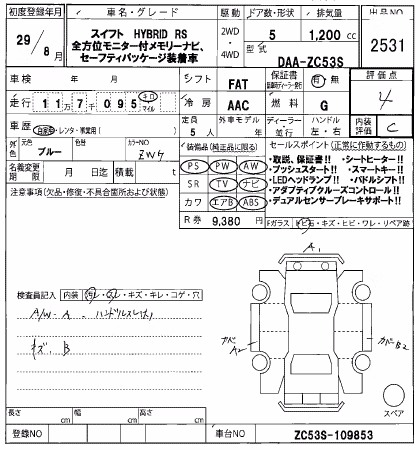 初度登録年月
車名・グレード
駆動
ドア数・形状
排気量
出品NO
29/8月
スイフト HYBRID RS
全方位モニター付メモリーナビ、
セーフティパッケージ装着車
2WD
・
4WD
5
1,200 cc
型式
DAA-ZC53S
2531
車検 年 月
シフト
FAT
保証書
有・無
評価点
4
走行
117095
キロ
マイル
冷房
AAC
燃料
G
車歴
自家用・レンタ・事業用( )
定員
5 人
外車モデル
年
ディーラー
・
並行
ハンドル
左・右
内装評価
C
外色
元色
ブルー
色替
カラーNO
ZW4
装備品(純正品に限る)
PS PW AW
SR TV ナビ
カワ エアB ABS
セールスポイント(正常に作動するもの)
・取説、保証書!! ・シートヒーター!!
・プッシュスタート!! ・スマートキー!!
・LEDヘッドランプ!! ・パドルシフト!!
・アダプティブクルーズコントロール!!
・デュアルセンサーブレーキサポート!!
名義変更期限
月 日迄
積載
t
注意事項(欠品・修復・不具合箇所および状態)
R券
9,380 円
Fガラス
トビ石・キズ・ヒビ・ワレ・リペア跡
A1
検査員記入
内装
汚レ・スレ・キズ・キレ・コゲ・穴
A/W-A
ハンドルスレ
キズ、B
カバーA2
カバーB2
スペア
長さ cm
幅 cm
高さ cm
登録NO
車台NO
ZC53S-109853